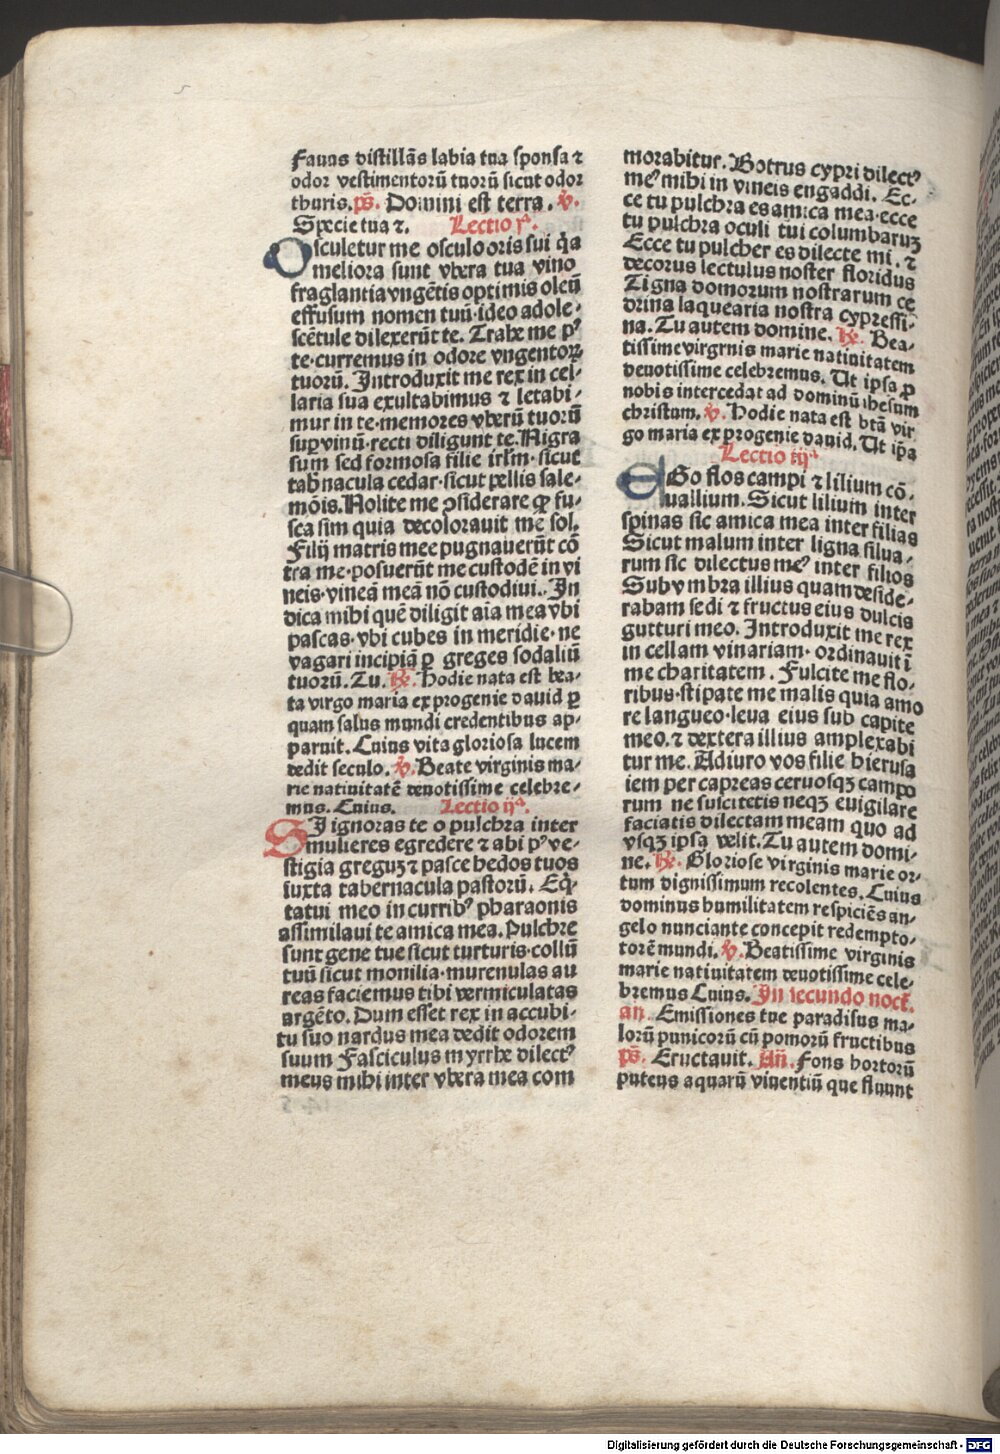 Fauus distillãs labia tua sponsa ⁊
odor vestimentorũ tuorũ sicut odor
thuris. ps̃. Domini est terra. ℣.
Specie tua ⁊. Lectio jª.
Osculetur me osculo oris sui q̃a
meliora sunt vbera tua vino
fraglantia vngẽtis optimis oleũ
effusum nomen tuũ·ideo adole-
scẽtule dilexerũt te. Trahe me pꝰ
te·curremus in odore vngentoꝝ
tuorũ. Introduxit me rex in cel-
laria sua exultabimus ⁊ letabi-
mur in te·memores vberũ tuorũ
suꝑ vinũ·recti diligunt te. Nigra
sum sed formosa filie irl̃m·sicut
tab̃nacula cedar·sicut pellis sale-
mõis. Nolite me ꝯsiderare ꝙ fu-
sca sim quia decolorauit me sol.
Filij matris mee pugnauerũt cõ
tra me·posuerũt me custodẽ in vi
neis·vineã meã nõ custodiui. In
dica mihi quẽ diligit aia mea vbi
pascas·vbi cubes in meridie·ne
vagari incipiã ꝑ greges sodaliũ
tuorũ. Tu. ℟. Hodie nata est bea-
ta virgo maria ex progenie dauid ꝑ
quam salus mundi credentibus ap-
paruit. Cuius vita gloriosa lucem
dedit seculo. ℣. Beate virginis ma-
rie natiuitatẽ deuotissime celebre-
mus. Cuius. Lectio ijª.
SI ignoras te o pulchra inter
mulieres egredere ⁊ abi pꝰ ve-
stigia greguꝫ ⁊ pasce hedos tuos
iuxta tabernacula pastorũ. Eq̃-
tatui meo in curribꝰ pharaonis
assimilaui te amica mea. Pulchre
sunt gene tue sicut turturis·collũ
tuũ sicut monilia·murenulas au
reas faciemus tibi vermiculatas
argẽto. Dum esset rex in accubi-
tu suo nardus mea dedit odorem
suum Fasciculus myrrhe dilectꝰ
meus mihi inter vbera mea com
morabitur. Botrus cypri dilectꝰ
meꝰ mihi in vineis engaddi. Ec-
ce tu pulchra es amica mea·ecce
tu pulchra oculi tui columbaruꝫ
Ecce tu pulcher es dilecte mi. ⁊
decorus lectulus noster floridus
Tigna domorum nostrarum ce
drina laquearia nostra cypressi-
na. Tu autem domine. ℟. Bea-
tissime virgrnis marie natiuitatem
deuotissime celebremus. Ut ipsa ꝓ
nobis intercedat ad dominũ ihesum
christum. ℣. Hodie nata est btã vir
go maria ex progenie dauid. Ut ip̃a
Lectio iijª
EGo flos campi ⁊ lilium cõ-
uallium. Sicut lilium inter
spinas sic amica mea inter filias
Sicut malum inter ligna silua-
rum sic dilectus meꝰ inter filios
Sub vmbra illius quam deside-
rabam sedi ⁊ fructus eius dulcis
gutturi meo. Introduxit me rex
in cellam vinariam·ordinauit ĩ
me charitatem. Fulcite me flo-
ribus·stipate me malis quia amo
re langueo·leua eius sub capite
meo. ⁊ dextera illius amplexabi
tur me. Adiuro vos filie hierusa
lem per capreas ceruosqꝫ campo
rum ne suscitetis neqꝫ euigilare
faciatis dilectam meam quo ad
vsqꝫ ipsa velit. Tu autem domi-
ne. ℟. Gloriose virginis marie or-
tum dignissimum recolentes. Cuius
dominus humilitatem respiciẽs an-
gelo nunciante concepit redempto-
torẽ mundi. ℣. Beatissime virginis
marie natiuitatem deuotissime cele-
bremus Cuius. In secundo noct̃.
añ. Emissiones tue paradisus ma-
lorũ punicorũ cũ pomorũ fructibus
ps̃. Eructauit. Añ. Fons hortorũ
puteus aquarũ viuentiũ que fluunt
Digitalisierung gefördert durch die Deutsche Forschungsgemeinschaft - DFG